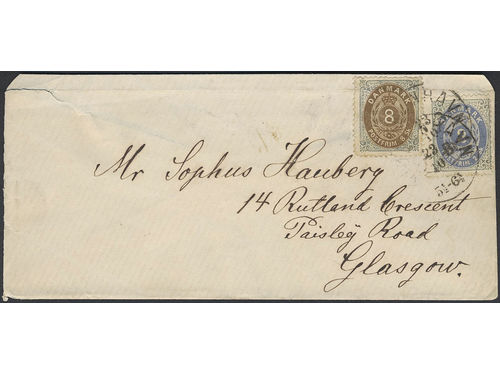 DANMARK
8
POSTFRIM. 8 SK.
Mr Sophus Hauberg
14 Rutland Crescent
Paisley Road
Glasgow.